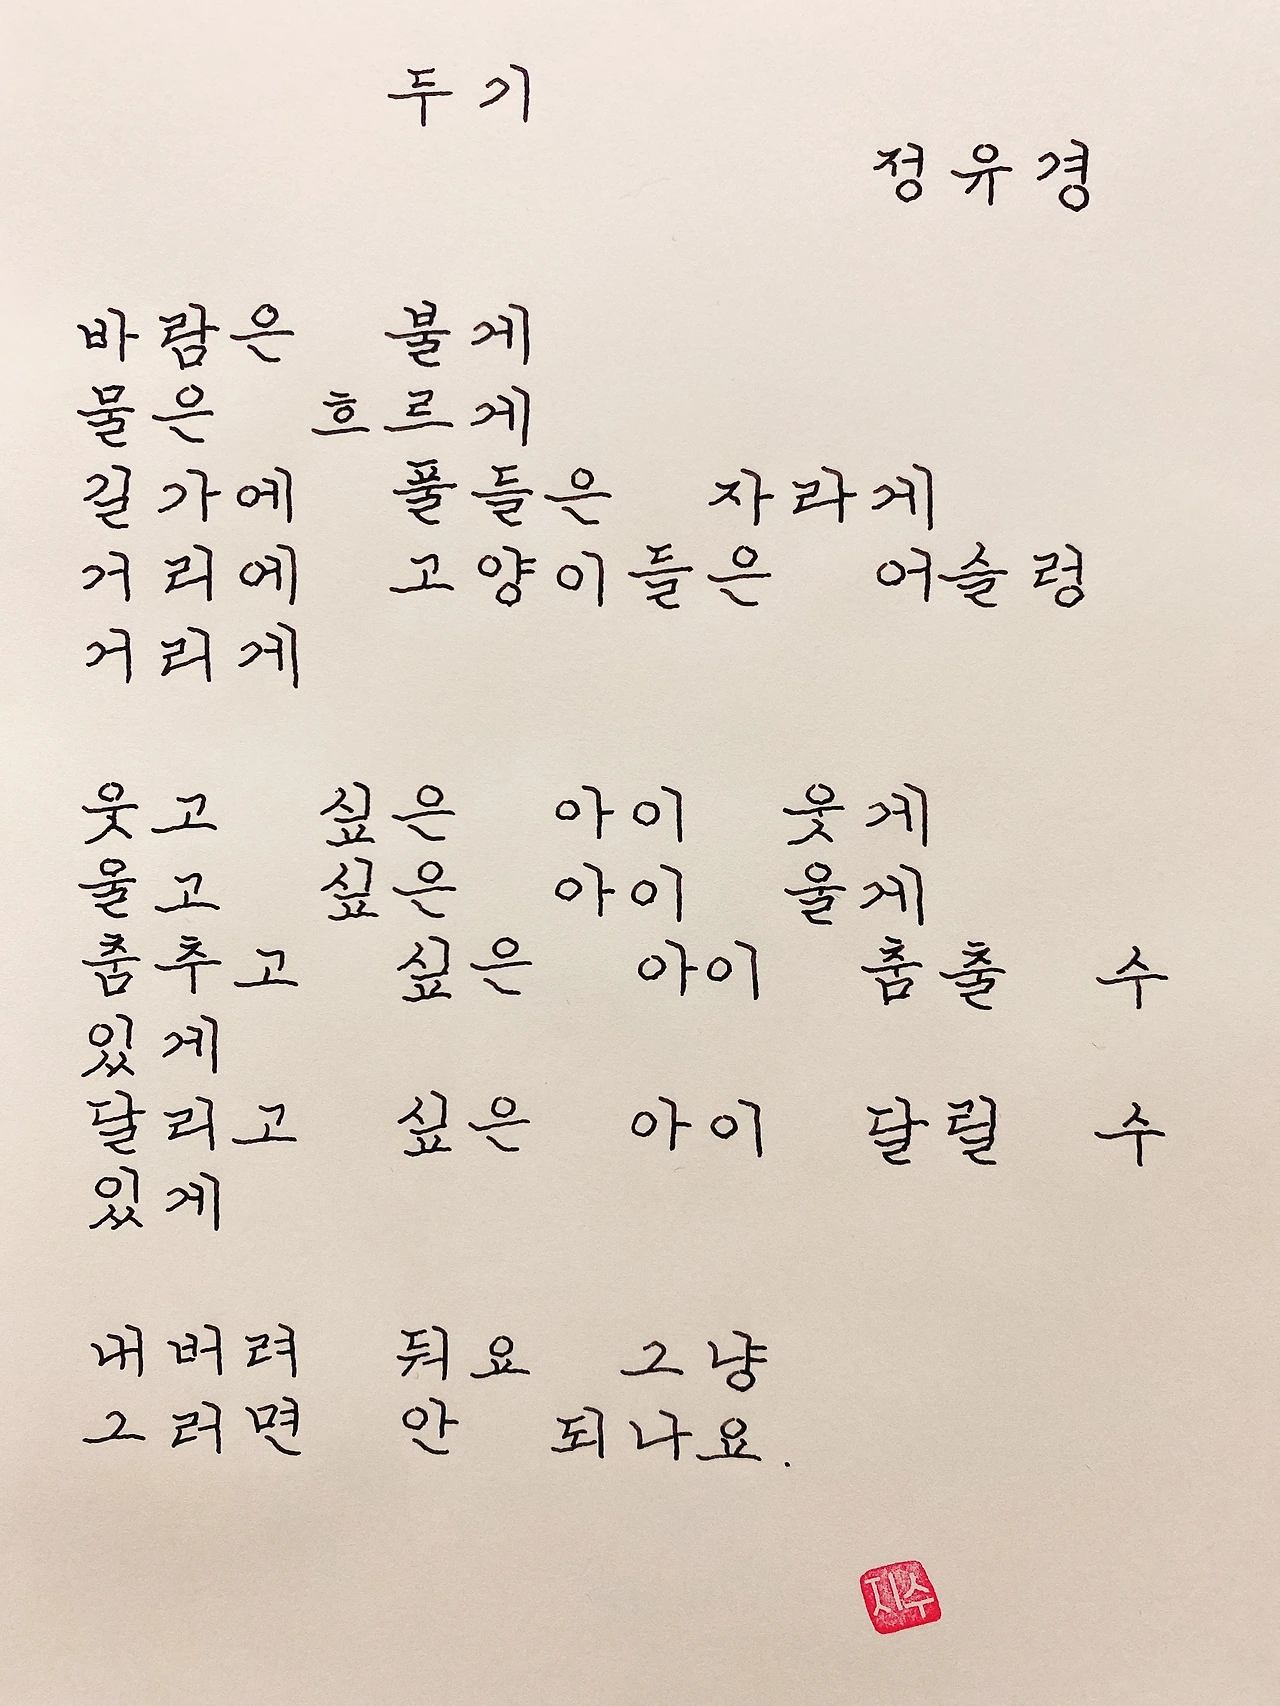 두기
정유경
바람은 불게
물은 흐르게
길가에 풀들은 자라게
거리에 고양이들은 어슬렁
거리게
웃고 싶은 아이 웃게
울고 싶은 아이 울게
춤추고 싶은 아이 춤출 수
있게
달리고 싶은 아이 달릴 수
있게
내버려 둬요 그냥
그러면 안 되나요.
지수